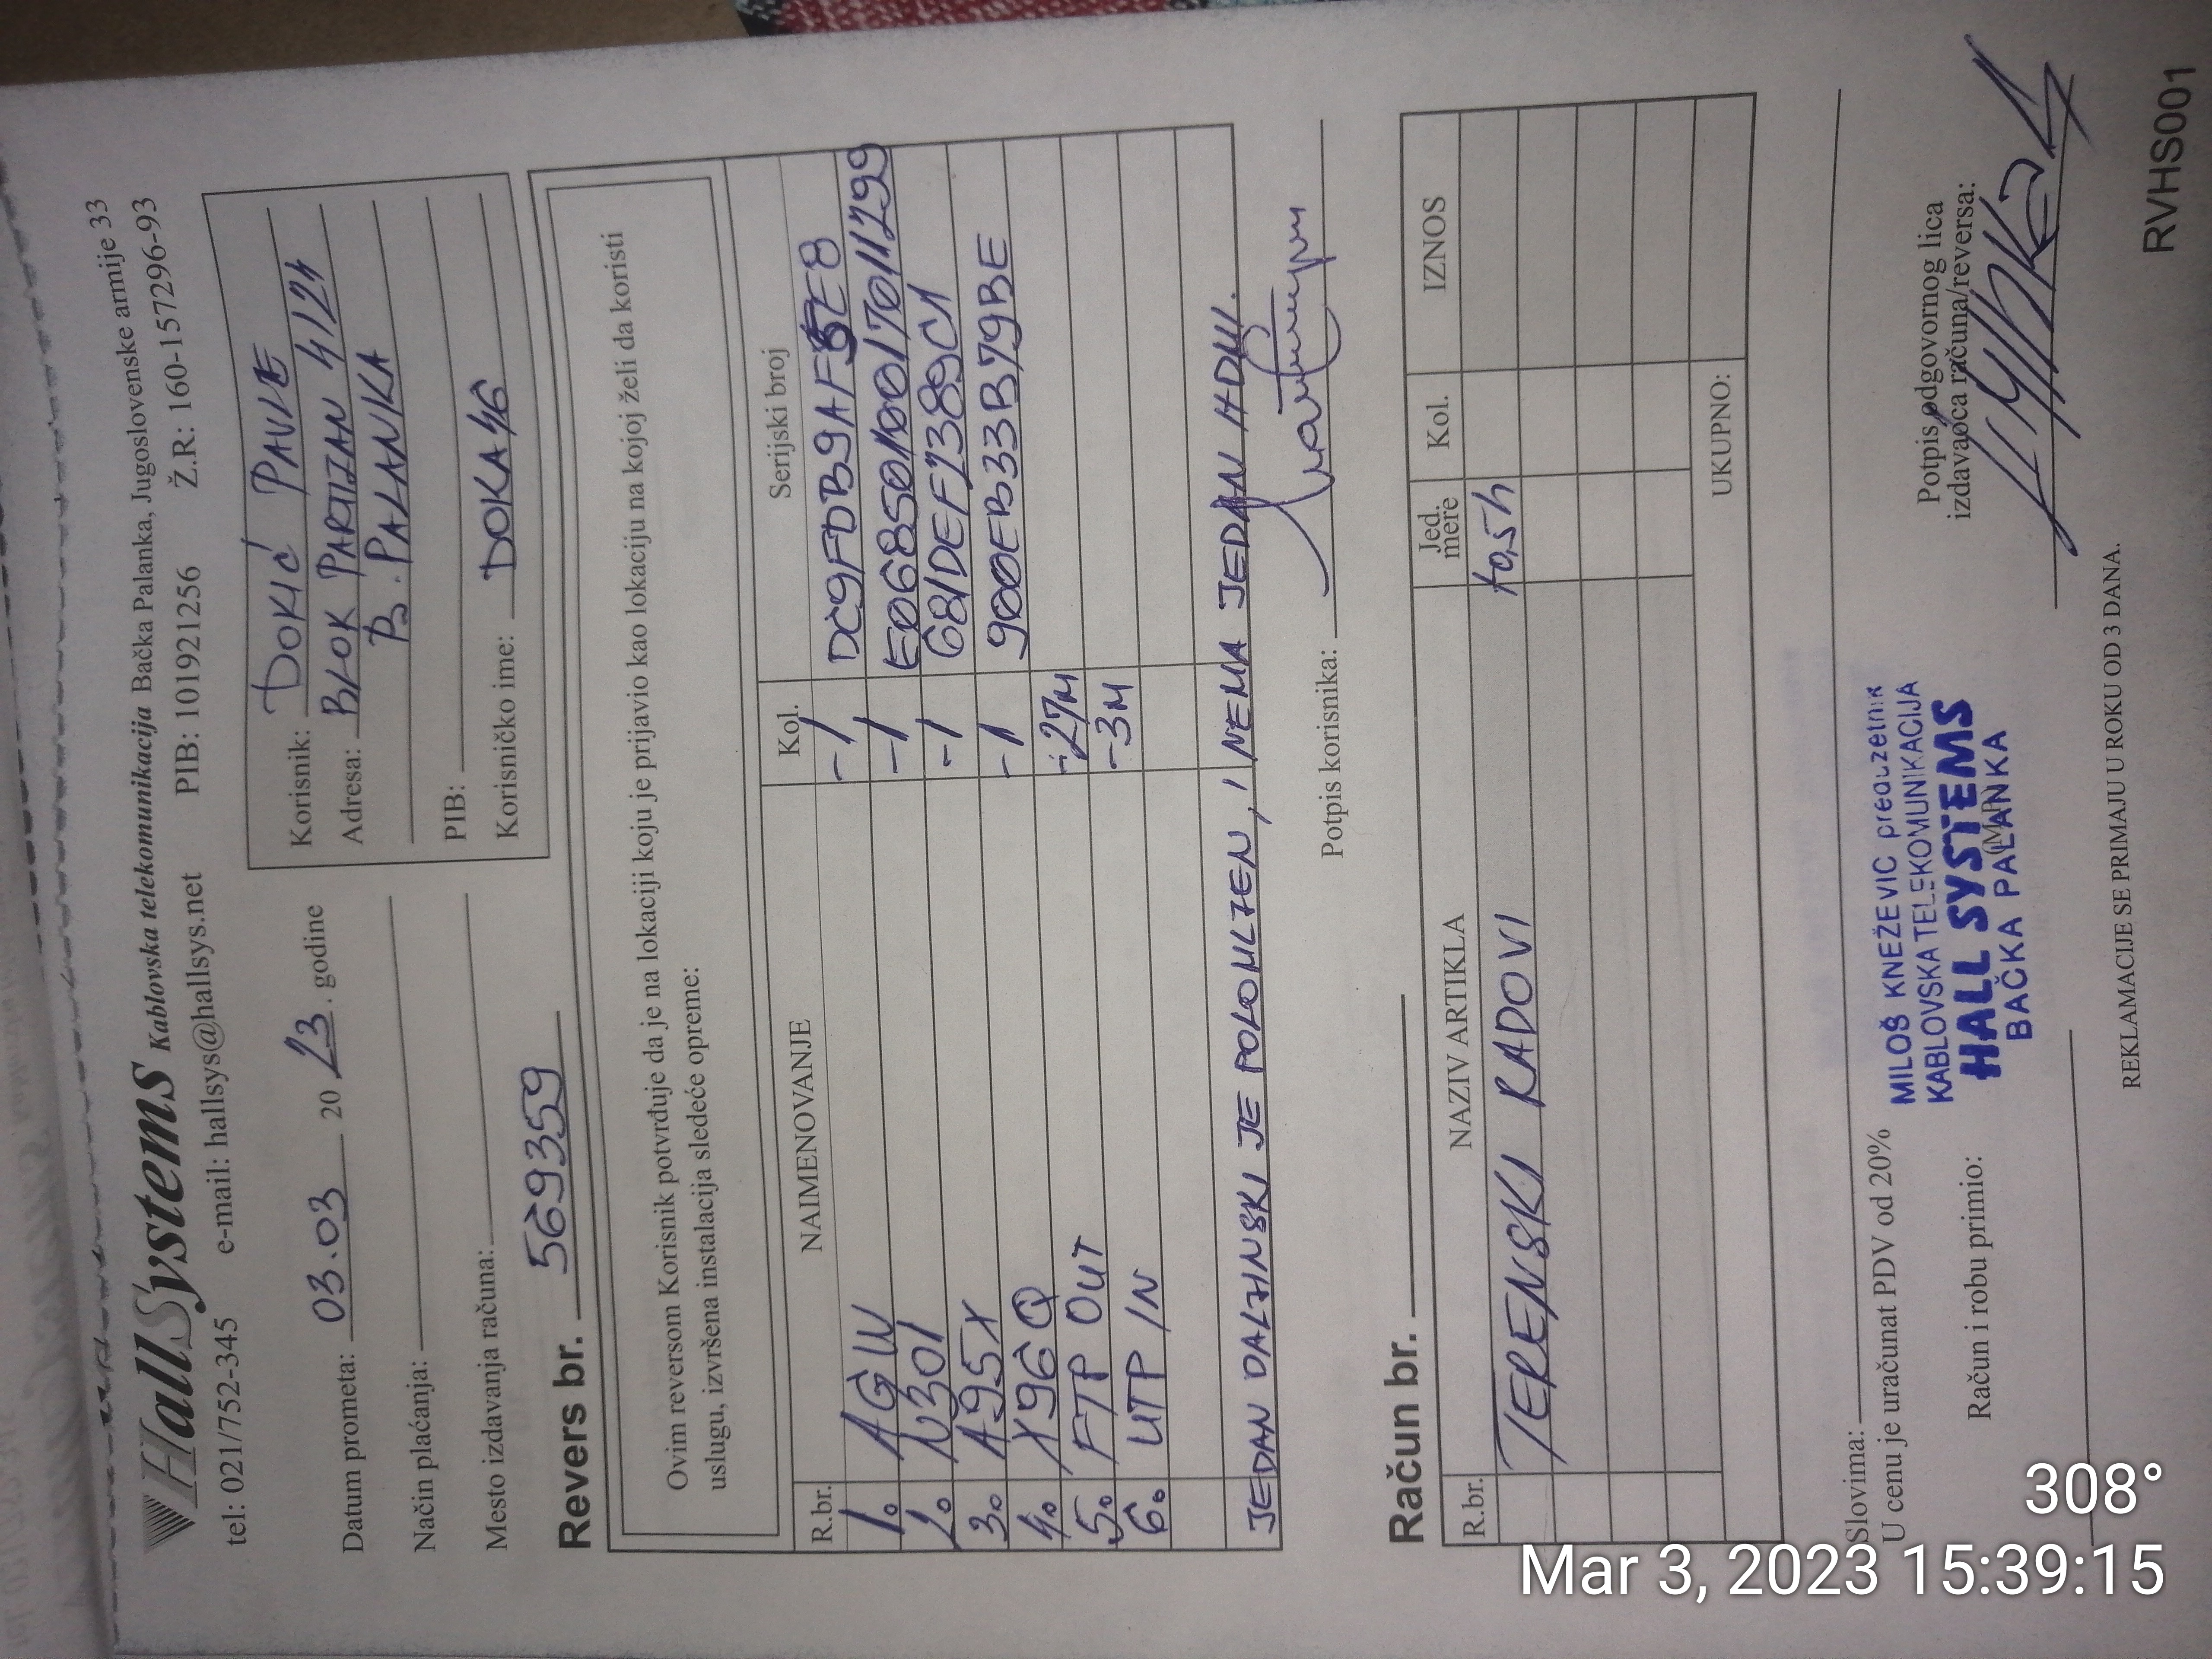 HallSystems Kablovska telekomunikacija Bačka Palanka, Jugoslovenske armije 33
tel: 021/752-345 e-mail: hallsys@hallsys.net PIB: 101921256 Ž.R: 160-157296-93
Datum prometa: 03.03 20 23. godine
Način plaćanja:
Mesto izdavanja računa:
Korisnik: DOKIĆ PAVLE
Adresa: BLOK PARTIZAN 4/24
B. PALANKA
PIB:
Korisničko ime: DOKA46
Revers br. 569359
Ovim reversom Korisnik potvrđuje da je na lokaciji koju je prijavio kao lokaciju na kojoj želi da koristi
uslugu, izvršena instalacija sledeće opreme:
R.br. NAIMENOVANJE Kol. Serijski broj
1. AGW -1
2. N301 -1 E0685010017011299
3. A95X -1 681DEF2389C1
4. X96Q -1 900EB33B79BE
5. FTP OUT -27M
6. UTP IN -3M
JEDAN DALJINSKI JE POLOMLJEN, I NEMA JEDAN HDMI.
Potpis korisnika:
Račun br.
R.br. NAZIV ARTIKLA Jed. mere Kol. IZNOS
TERENSKI RADOVI
UKUPNO:
Slovima:
U cenu je uračunat PDV od 20%
MILOŠ KNEŽEVIĆ preduzetnik
KABLOVSKA TELEKOMUNIKACIJA
HALL SYSTEMS
BAČKA PALANKA
(MP)
Račun i robu primio:
Potpis odgovornog lica
izdavaoca računa/reversa:
REKLAMACIJE SE PRIMAJU U ROKU OD 3 DANA.
RVHS001
308°
Mar 3, 2023 15:39:15